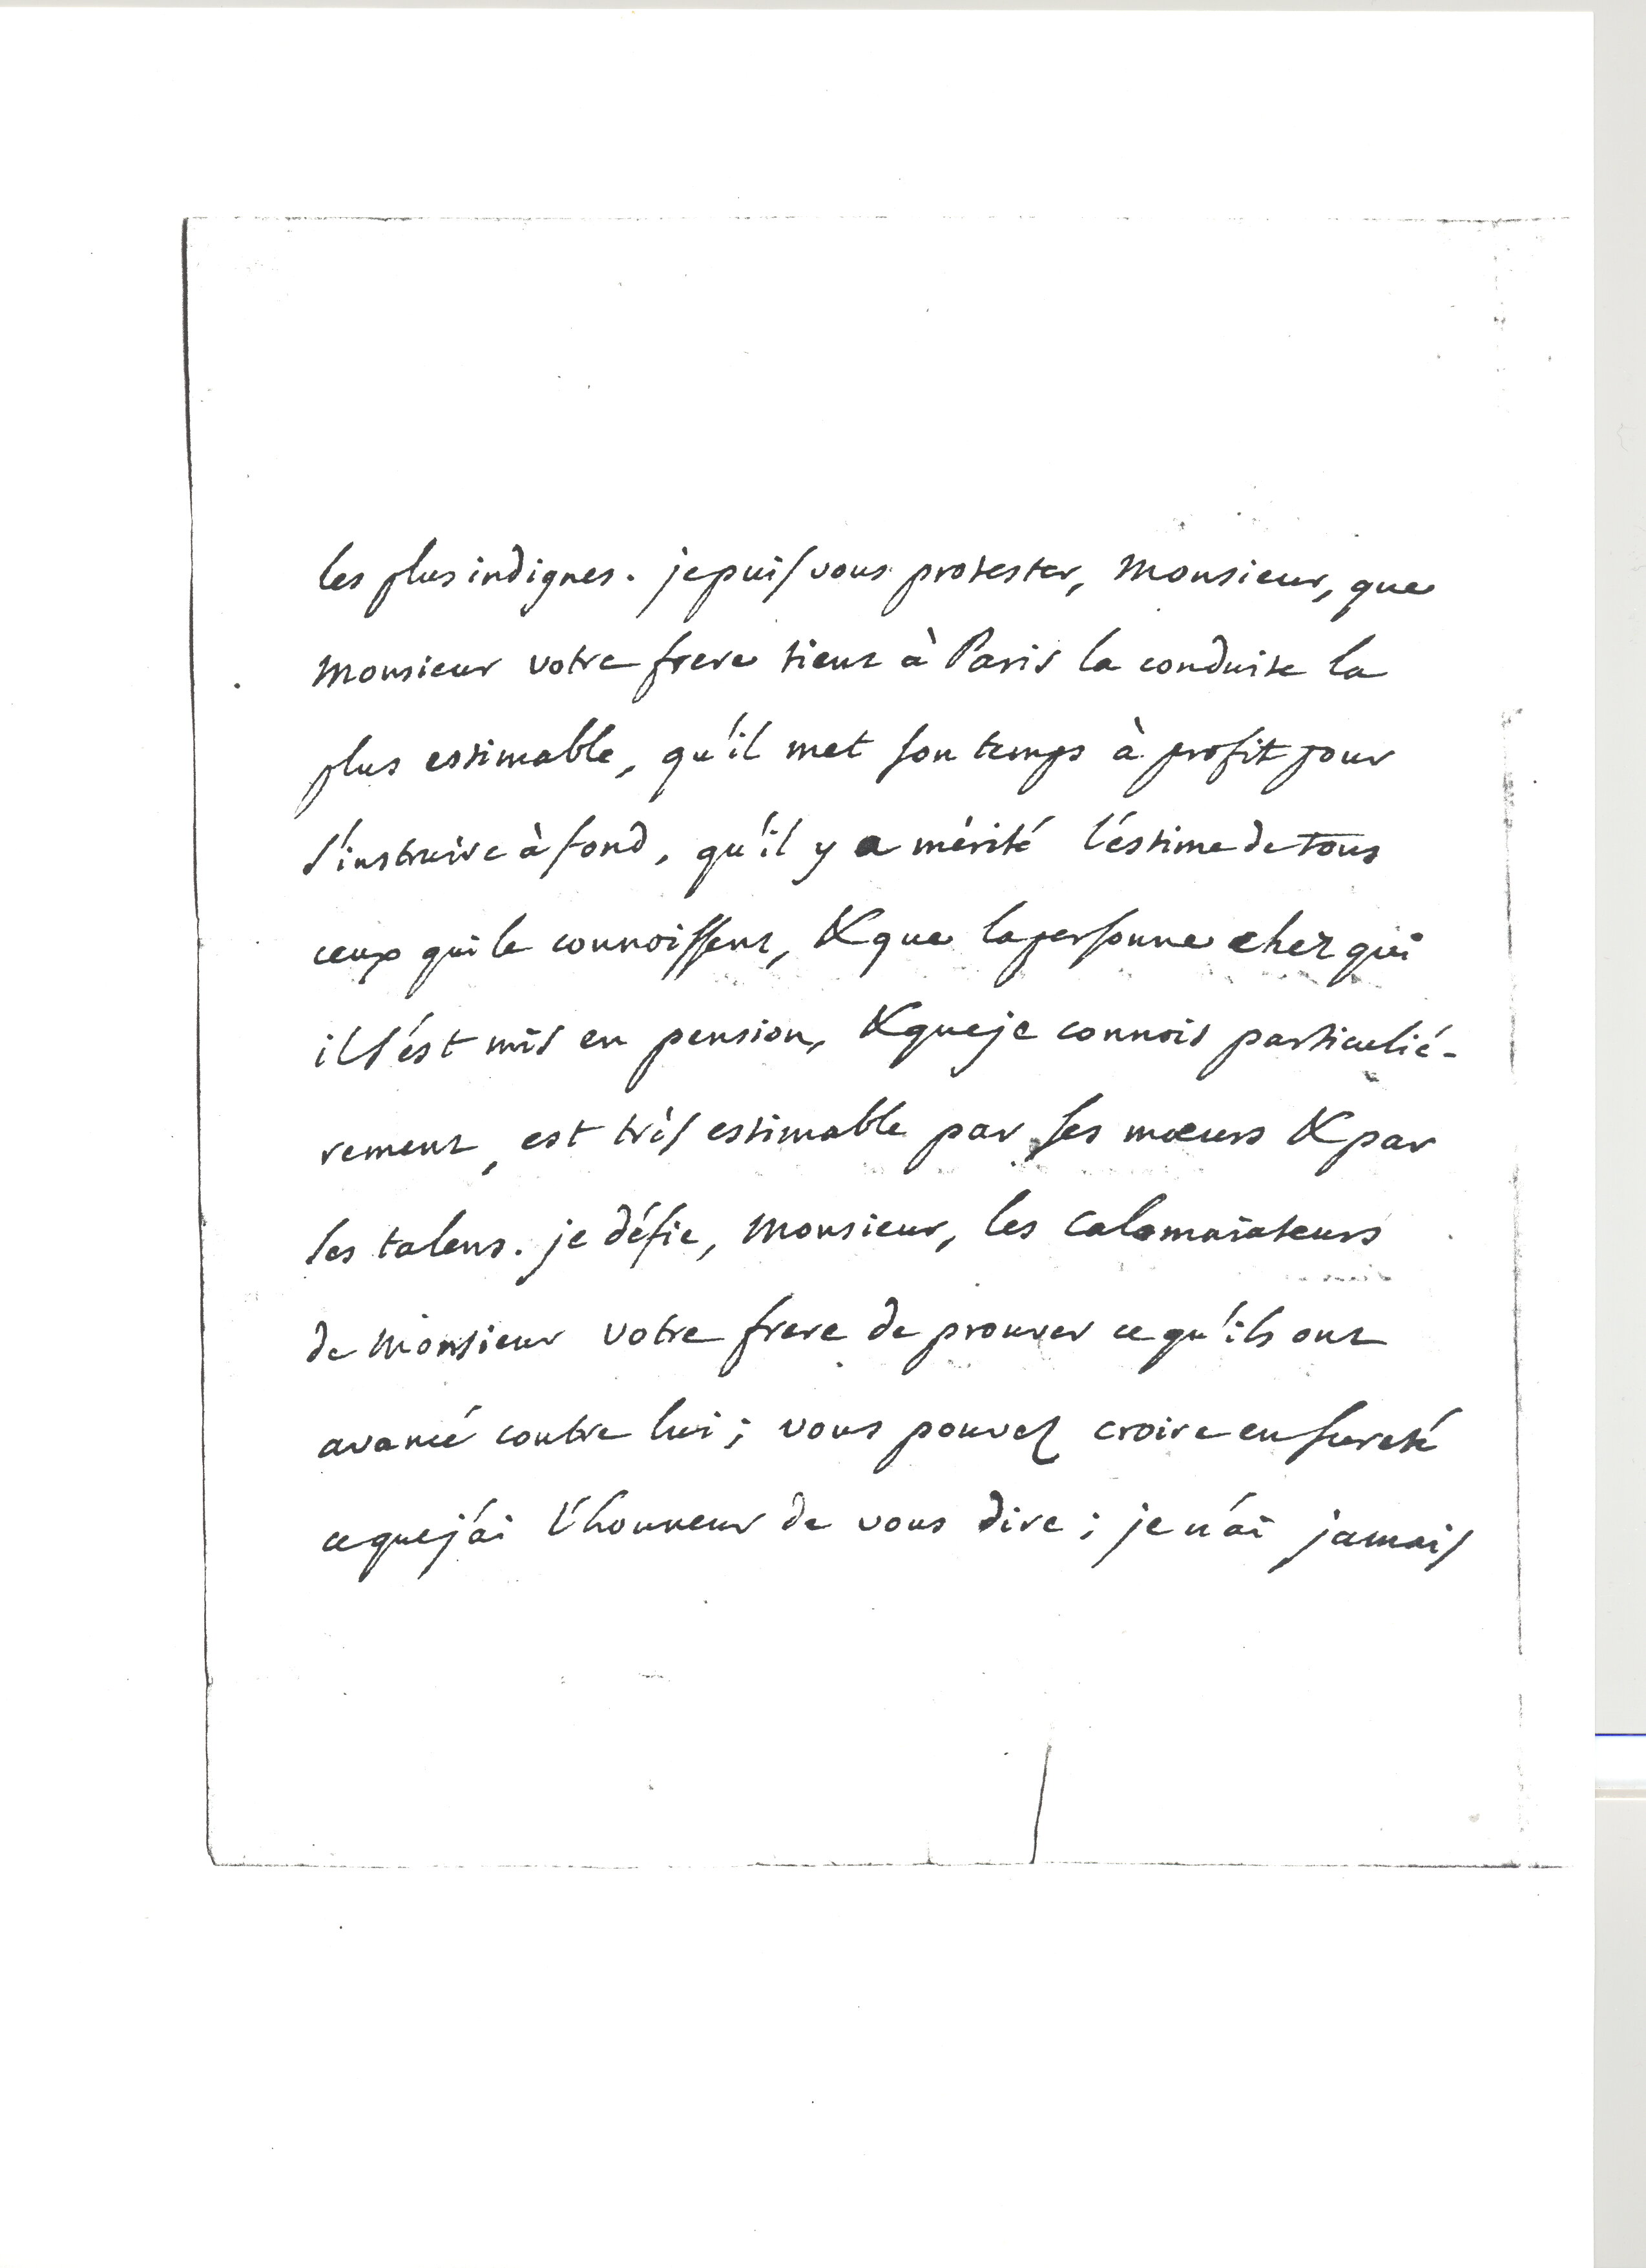 les plus indignes. je puis vous protester, Monsieur, que
Monsieur votre frere tient à Paris la conduite la
plus estimable, qu'il met son temps à profit pour
s'instruire à fond, qu'il y a mérité l'éstime de tous
ceux qui le connoissent, & que la personne chez qui
il s'ést mis en pension, & que je connois particulié-
rement, est très estimable par ses mœurs & par
ses talens. je défie, Monsieur, les calomniateurs
de Monsieur votre frere de prouver ce qu'ils ont
avancé contre lui ; vous pouvez croire en sureté
ce que j'ai l'honneur de vous dire ; je n'ai jamais